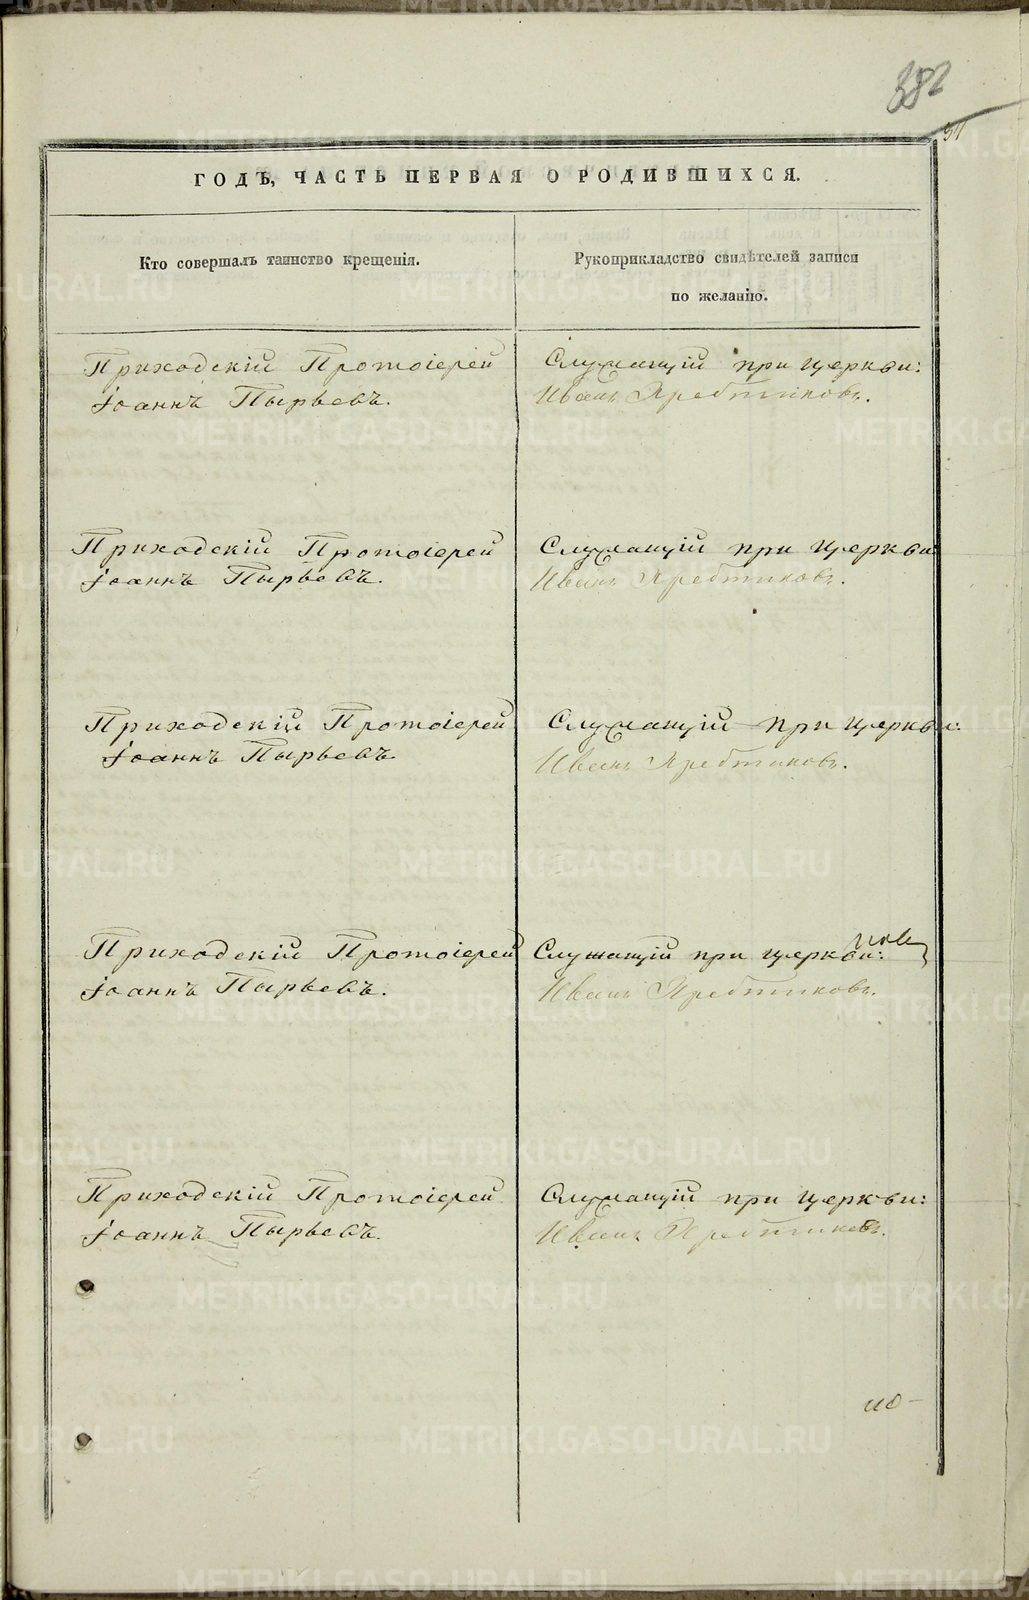 382
51
ГОДЪ, ЧАСТЬ ПЕРВАЯ О РОДИВШИХСЯ.
Кто совершалъ таинство крещенія.
Рукоприкладство свидѣтелей записи
по желанію.
Приходскій Протоіерей
Іоаннъ Пырьевъ.
Служащій при церкви:
Иванъ Яребтиковъ.
Приходскій Протоіерей
Іоаннъ Пырьевъ.
Служащій при церкви
Иванъ Яребтиковъ.
Приходскій Протоіерей
Іоаннъ Пырьевъ
Служащій при церкви:
Иванъ Яребтиковъ.
Приходскій Протоіерей
Іоаннъ Пырьевъ.
Служащій при церкви:
Иванъ Яребтиковъ.
Приходскій Протоіерей
Іоаннъ Пырьевъ.
Служащій при церкви:
Иванъ Яребтиковъ.
по-
METRIKI.GASO-URAL.RU